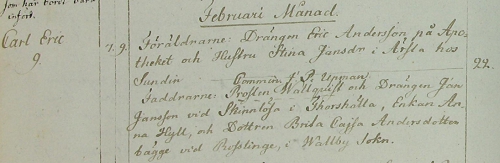 Februari Månad.
Carl Eric
9.
7. 9. Föräldrarne: Drängen Eric Andersson på Apo-
theket och Hustru Stina Jansdr i Ärsta hos
Sundin
22.
Faddrarne: Prosten Wallquist och Drängen Jan
Jansson vid Skinnlösa i Thorshälla, Enkan An-
na Hyll, och Dottren Brita Cajsa Andersdotter
bägge vid Rosslinge, i Wallby Sokn.